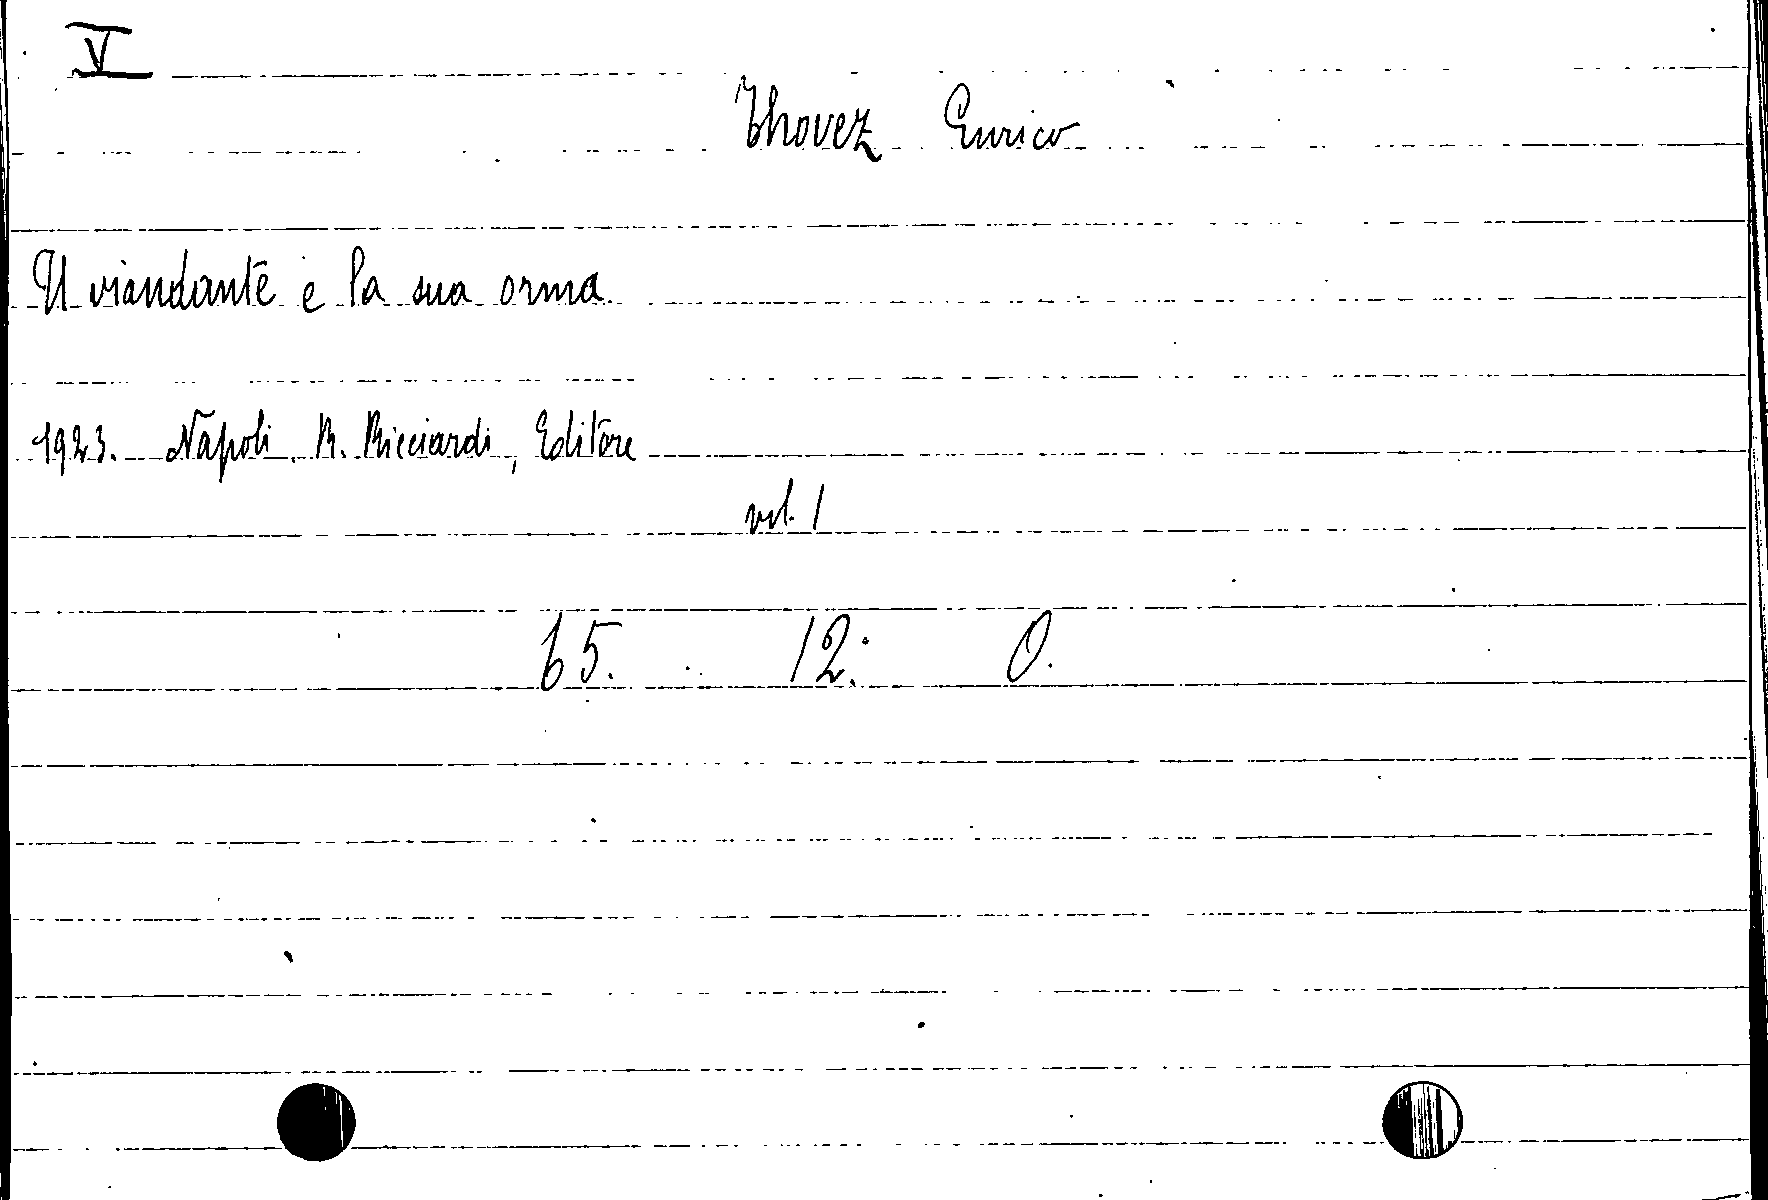 V
Thovez Enrico
Il viandante e la sua orma
1923. Napoli. R. Ricciardi, Editore
vol. 1
65. 12. O.